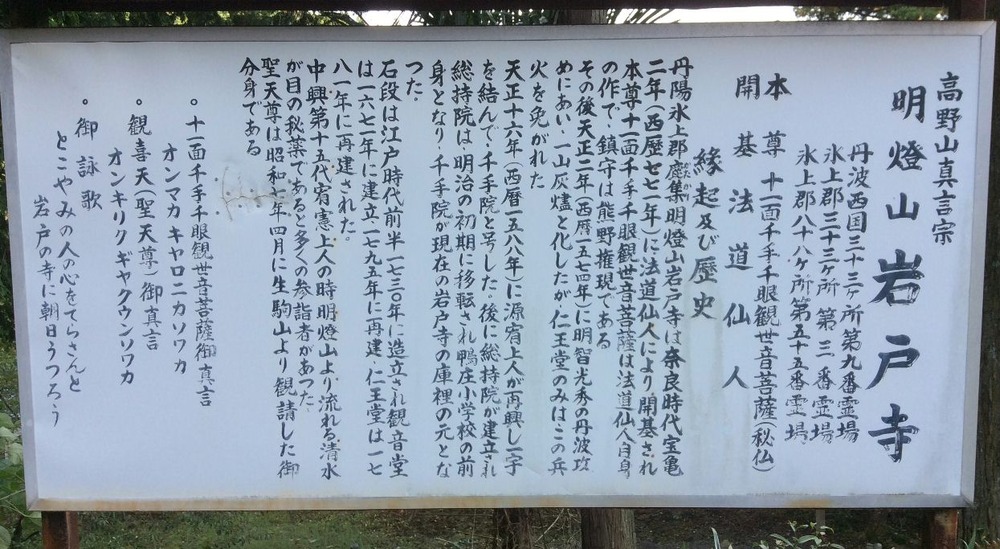 高野山真言宗
明燈山岩戸寺
丹波西国三十三ヶ所第九番霊場
氷上郡三十三ヶ所第三番霊場
氷上郡八十八ヶ所第五十五番霊場
本尊 十一面千手千眼観世音菩薩(秘仏)
開基 法道仙人
縁起及び歴史
丹陽氷上郡鹿集明燈山岩戸寺は奈良時代宝亀
二年(西歴七七一年)に法道仙人により開基され
本尊十一面千手千眼観世音菩薩は法道仙人自身
の作で、鎮守は熊野権現である
その後天正二年(西暦一五七四年)に明智光秀の丹波攻
めにあい、一山灰燼と化したが仁王堂のみはこの兵
火を免がれた
天正十六年(西暦一五八八年)に源宥上人が再興し一宇
を結んで、千手院と号した。後に総持院が建立され
総持院は、明治の初期に移転され鴨庄小学校の前
身となり、千手院が現在の岩戸寺の庫裡の元とな
った。
石段は江戸時代前半一七三〇年に造立され観音堂
は一六七一年に建立一七九五年に再建、仁王堂は一七
八一年に再建された。
中興第十五代宥憲上人の時明燈山より流れる清水
が目の秘薬であると多くの参詣者があつた
聖天尊は昭和七年四月に生駒山より観請した御
分身である
。十一面千手千眼観世音菩薩御真言
オンマカキャロニカソワカ
。観喜天(聖天尊)御真言
オンキリクギャクウンソワカ
。御詠歌
とこやみの人の心をてらさんと
岩戸の寺に朝日うつろう